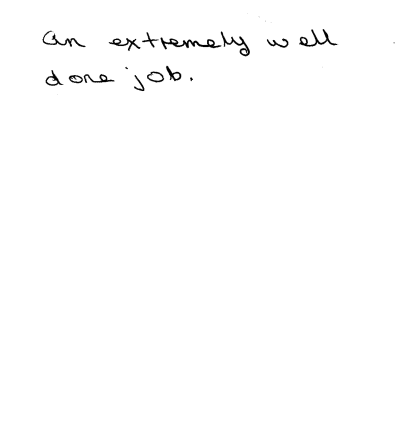 An extremely well
done job.